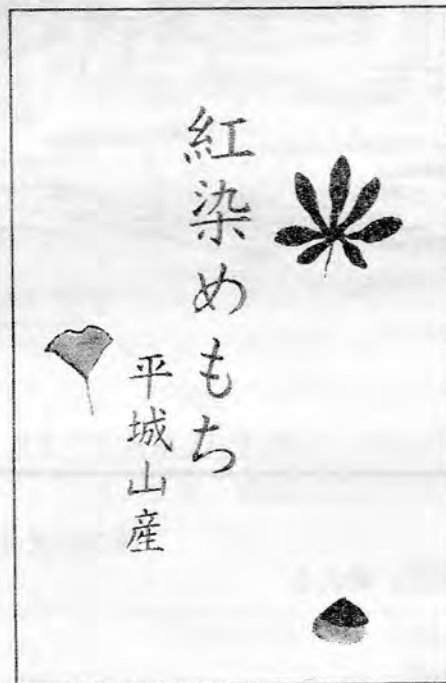 紅染めもち
平城山産